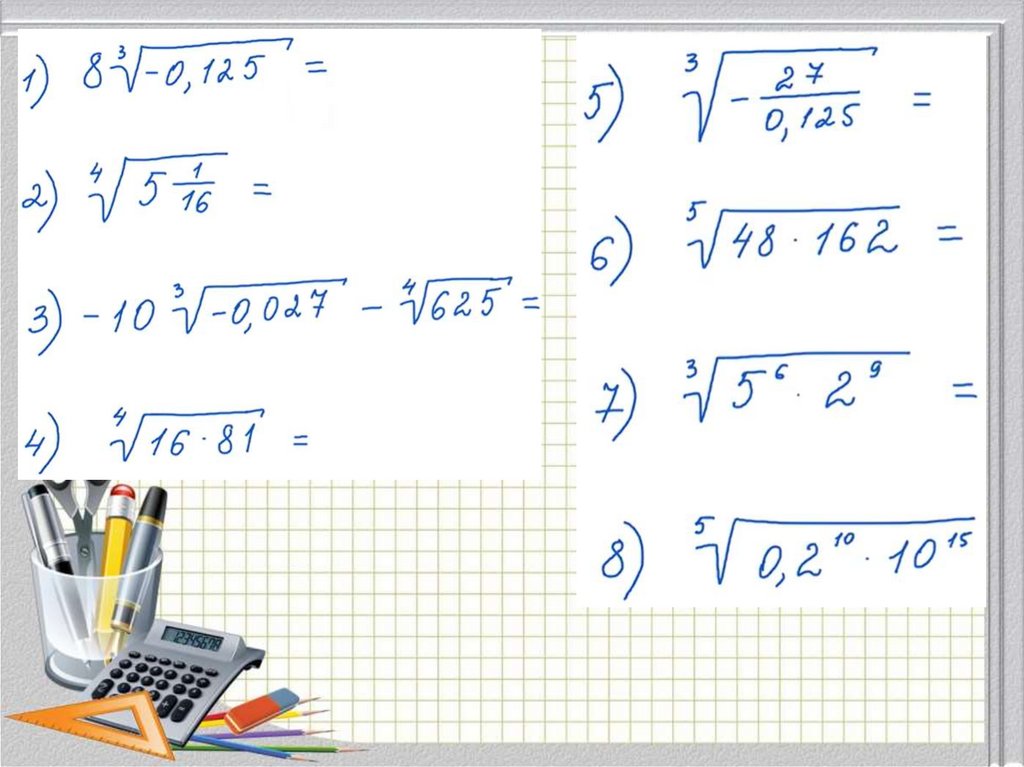 1) 8∛-0,125 =
2) ∜5 1/16 =
3) -10 ∛-0,027 - ∜625 =
4) ∜16 · 81 =
5) ∛- 27/0,125 =
6) ⁵√48 · 162 =
7) ∛5⁶ · 2⁹ =
8) ⁵√0,2¹⁰ · 10¹⁵
12345678